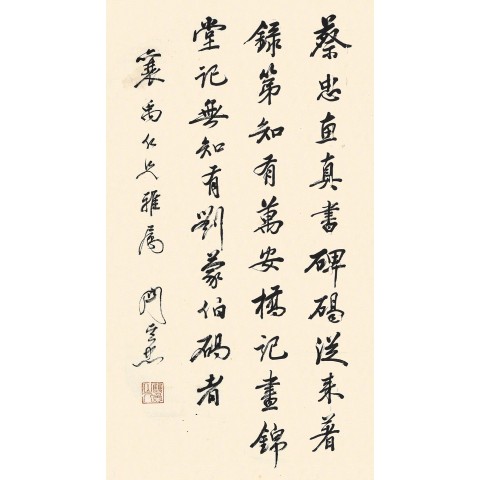 蔡忠直真書碑碣從來著
錄第知有萬安橋記畫錦
堂記無知有劉蒙伯碣者
襄禹仁兄雅屬